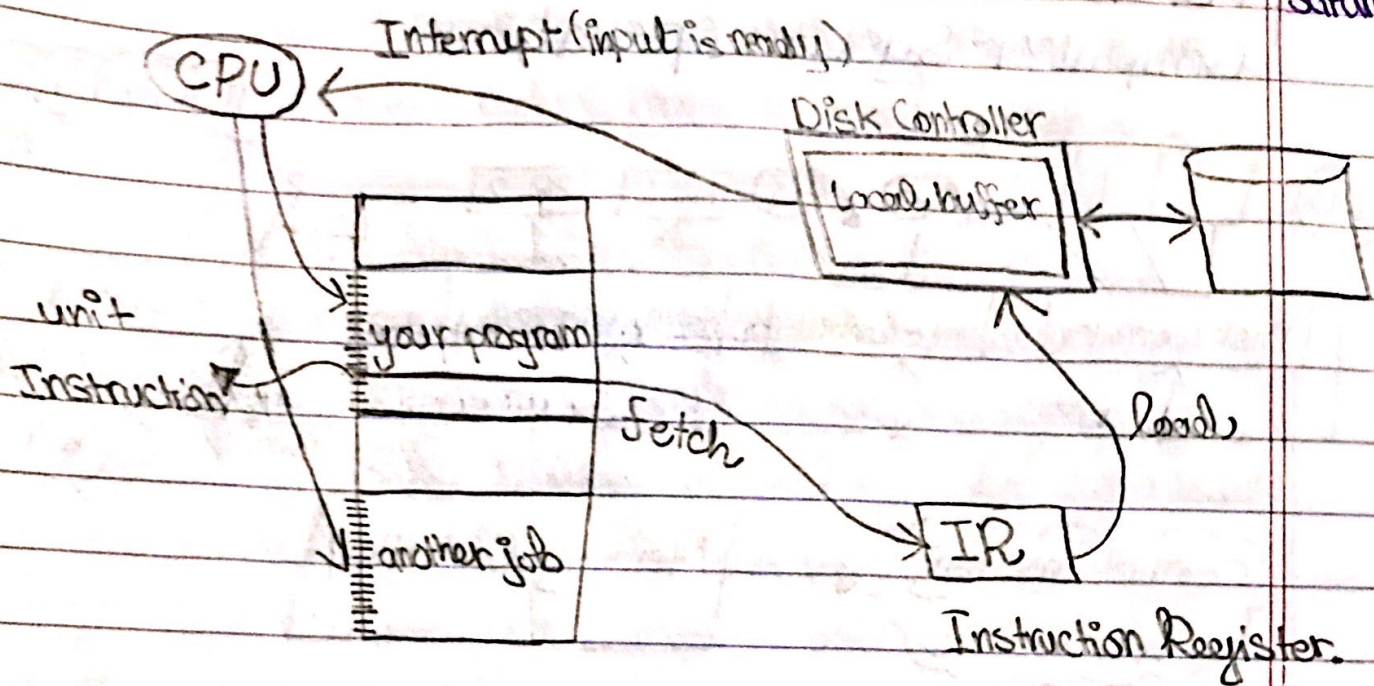 Interrupt (input is ready)
CPU
Disk Controller
Local buffer
unit
Instruction
your program
fetch
load
another job
IR
Instruction Register.